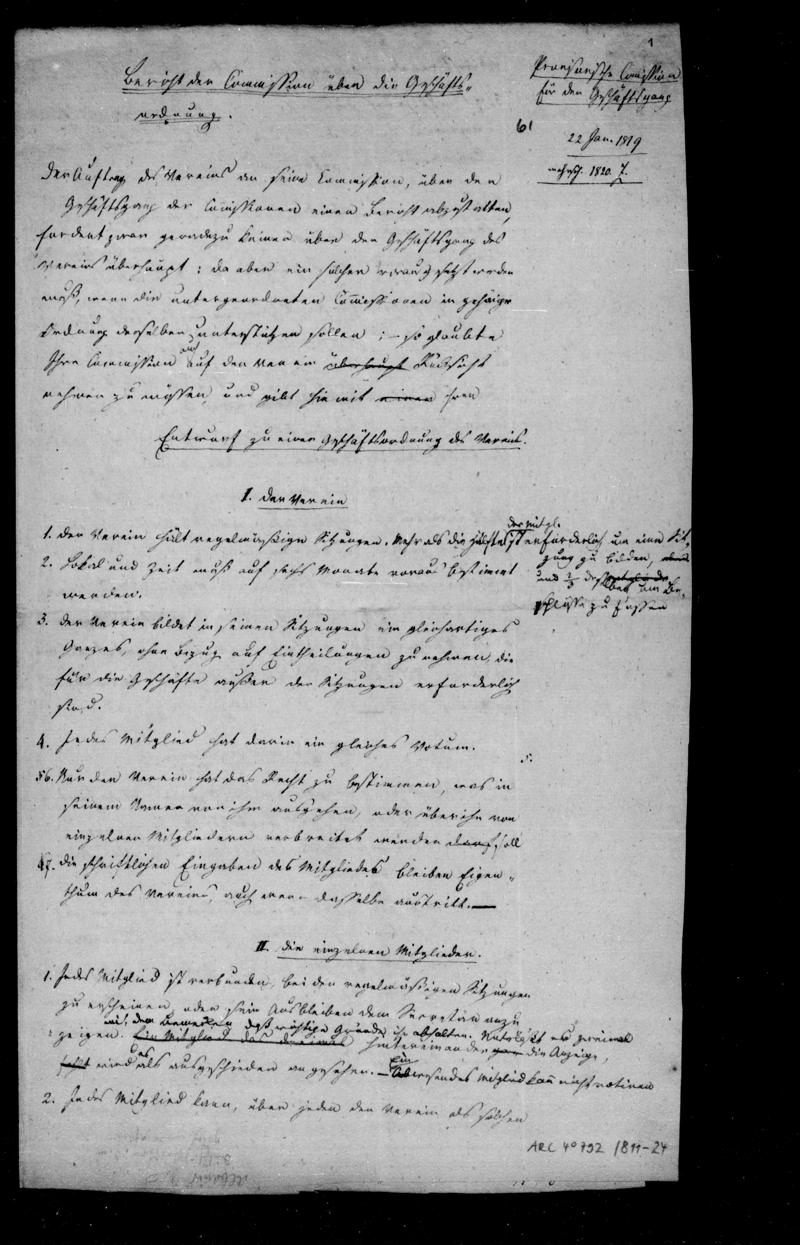 1
Bericht der Commission über die Geschäfts-
ordnung.
Provisorische Comission
für den Geschäftsgang
61
22 Jan. 1819
1820. 7.
Der Auftrag des Vereins an seine Commission, über den
Geschäftsgang der Comissionen einen Bericht abzustatten,
fordert zwar geradezu keinen über den Geschäftsgang des
Vereins überhaupt; da aber ein solcher vorausgesetzt werden
muß, wenn die untergeordneten Comissionen in gehöriger
Ordnung denselben unterstützen sollen; – so glaubte
Ihre Commission auch auf den Verein überhaupt Rücksicht
nehmen zu müssen, und gibt hiemit einen ihren
Entwurf zu einer Geschäftsordnung des Vereins.
I. Der Verein
1. Der Verein hält regelmäßige Sitzungen. Mehr als die Hälfte der Mitgl. ist erforderlich um eine Sit-
zung zu bilden,
und 2/3 derselben um Be-
schlüsse zu fassen
2. Lokal und Zeit muß auf sechs Monate voraus bestimmt
werden.
3. Der Verein bildet in seinen Sitzungen ein gleichartiges
Ganzes, ohne Bezug auf Eintheilungen zu nehmen, die
für die Geschäfte außer den Sitzungen erforderlich
sind.
4. Jedes Mitglied hat darin ein gleiches Votum.
5.
56. Nur der Verein hat das Recht zu bestimmen, was in
seinem Namen von ihm ausgehen, oder über ihn von
einzelnen Mitgliedern verbreitet werden darf soll
7. Die schriftlichen Eingaben des Mitgliedes bleiben Eigen-
thum des Vereins, auch wenn dasselbe austritt. —
II. Die einzelnen Mitglieder.
1. Jedes Mitglied ist verbunden, bei den regelmäßigen Sitzungen
zu erscheinen, oder sein Ausbleiben dem Secretär anzu-
mit dem Bemerken daß wichtige Gründe ihn abhalten. Unterläßt es zweimal
zeigen. Ein Mitglied das dreimal hintereinander die Anzeige,
fehlt wird es als ausgeschieden angesehen. – Ein Abwesendes Mitglied kann nicht votiren
2. Jedes Mitglied kann, über jeden den Verein als solchen
ARC 4° 792 / B11-24